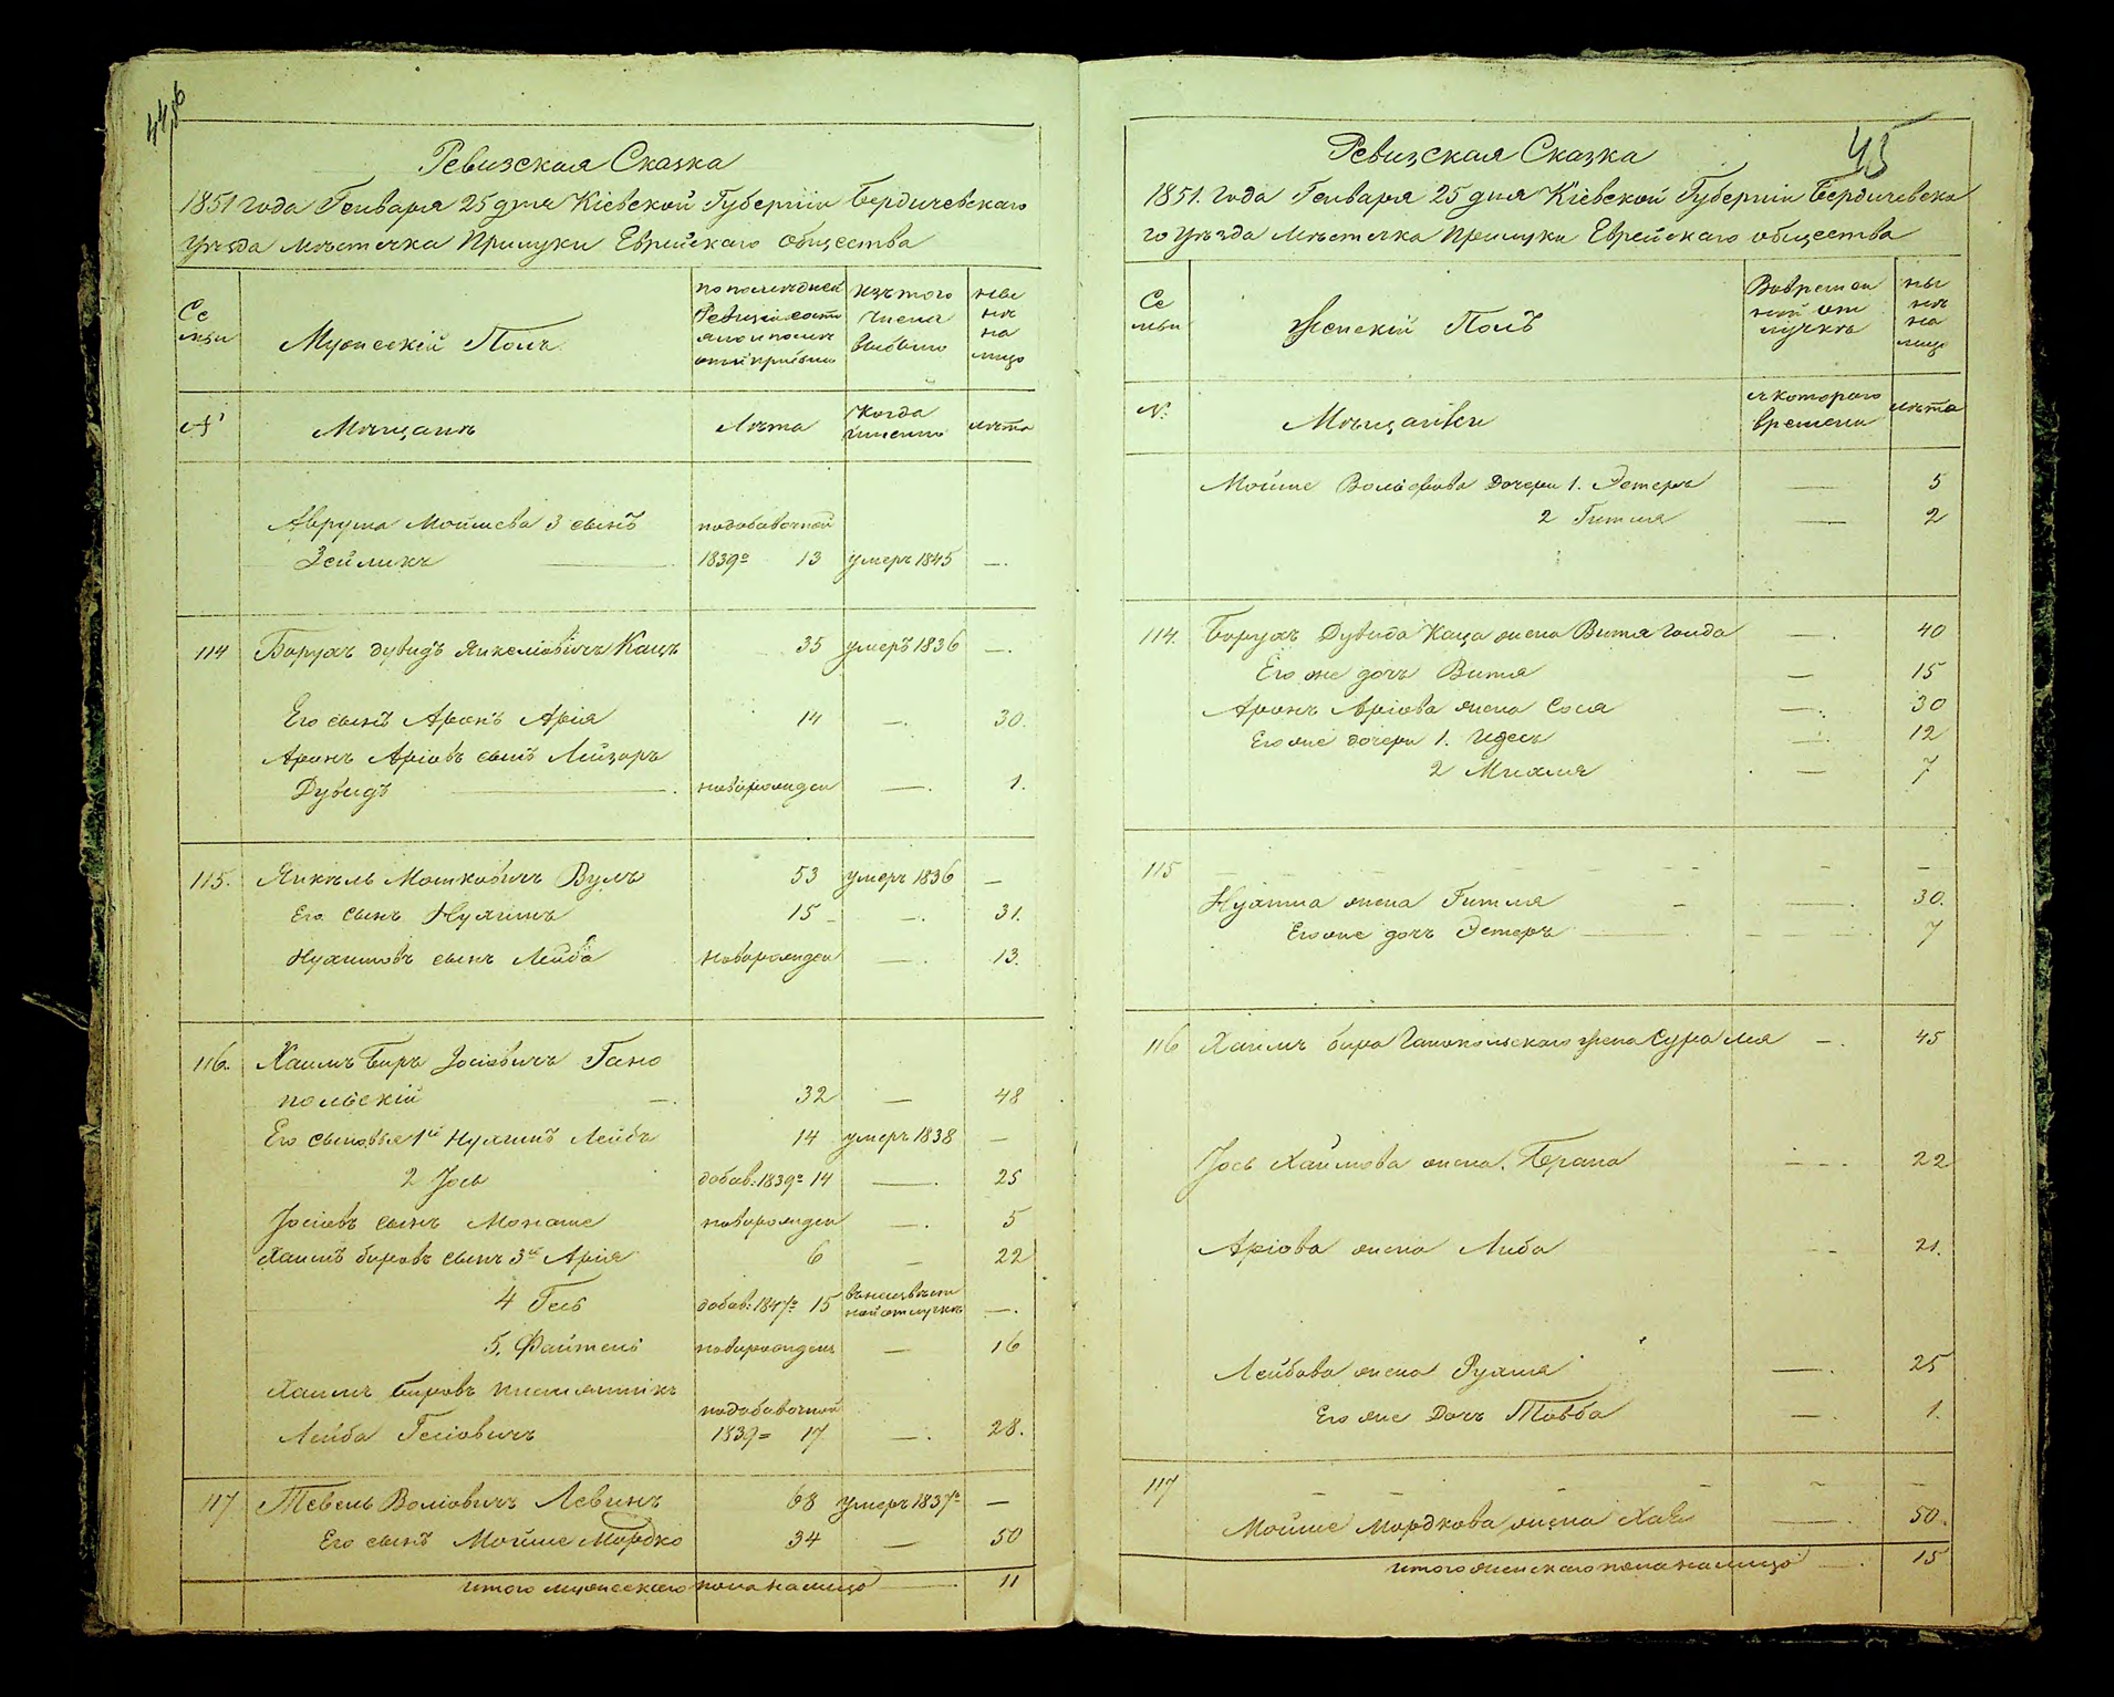 44об
Ревизская Сказка
1851 года Генваря 25 дня Кіевской Губерніи Бердичевскаго
уѣзда мѣстечка Прилуки Еврейскаго общества
Се
мьи
Мужескій Полъ
по послѣдней
Ревизіи состо
яло и послѣ
оной прибыло
изъ того
числа
выбыло
ны
нѣ
на
лицо
№
Мѣщанъ
Лѣта
Когда
именно
лѣта
Аврума Мойшева 3 сынъ
Зейликъ
по добавочной
1839го 13 умеръ 1845 —.
114 Борухъ Дувидъ Янкеліовичъ Кацъ 35 умеръ 1836 —.
Его сынъ Аронъ Арія 14 —. 30.
Аронъ Аріовъ сынъ Лейзоръ
Дувидъ — новорожден —. 1.
115. Янкель Мошковичъ Вулъ 53 умеръ 1836 —
Его сынъ Нухимъ 15 — —. 31.
Нухимовъ сынъ Лейба новорожден —. 13.
116. Хаимъ Беръ Іосіовичъ Гано
польскій —. 32 — 48
Его сыновья 1й Нухимъ Лейба 14 умеръ 1838 —
2 Іось добав: 1839го 14 —. 25
Іосіовъ сынъ Монаше новорожден —. 5
Хаимъ Беровъ сынъ 3й Арія 6 — 22
4 Гесь добав: 1847го 15 въ неизвѣст
ной отлучкѣ —.
5. Файтель новорожден — 16
Хаимъ Беровъ племянникъ
Лейба Гесіовичъ
по добавочной
1839го 17 —. 28.
117 Тевель Воліовичъ Левинъ 68 умеръ 1837го —
Его сынъ Мойше Мордко 34 — 50
итого мужескаго пола на лицо — 11
45
Ревизская Сказка
1851. года Генваря 25 дня Кіевской Губерніи Бердичевска
го уѣзда мѣстечка Прилуки Еврейскаго общества
Се
мьи
Женскій Полъ
Во времен
ной от
лучкѣ
ны
нѣ
на
лицо
№:
Мѣщанки
съ котораго
времени
лѣта
Мойше Дочери 1. Эстеръ — 5
2 Гитля — 2
114. Борухъ Дувида Каца жена Витя —. 40
Его же дочь Витя — 15
Аронъ Аріова жена Сося —. 30
Его же дочери 1. Идесъ —. 12
2 Михля . — 7
115
Нухима жена Гитля — —. 30.
Его же дочь Эстеръ — 7
116 Хаимъ Бера Ганопольскаго жена Сура Лея —. 45
Іось Хаимова жена. Брана —. 22
Аріова жена Либа — 21.
Лейбова жена Рухля —. 25
Его же Дочь Товба —. 1.
117
Мойше Мордкова жена Хая —. 50.
итого женскаго пола на лицо —. 15